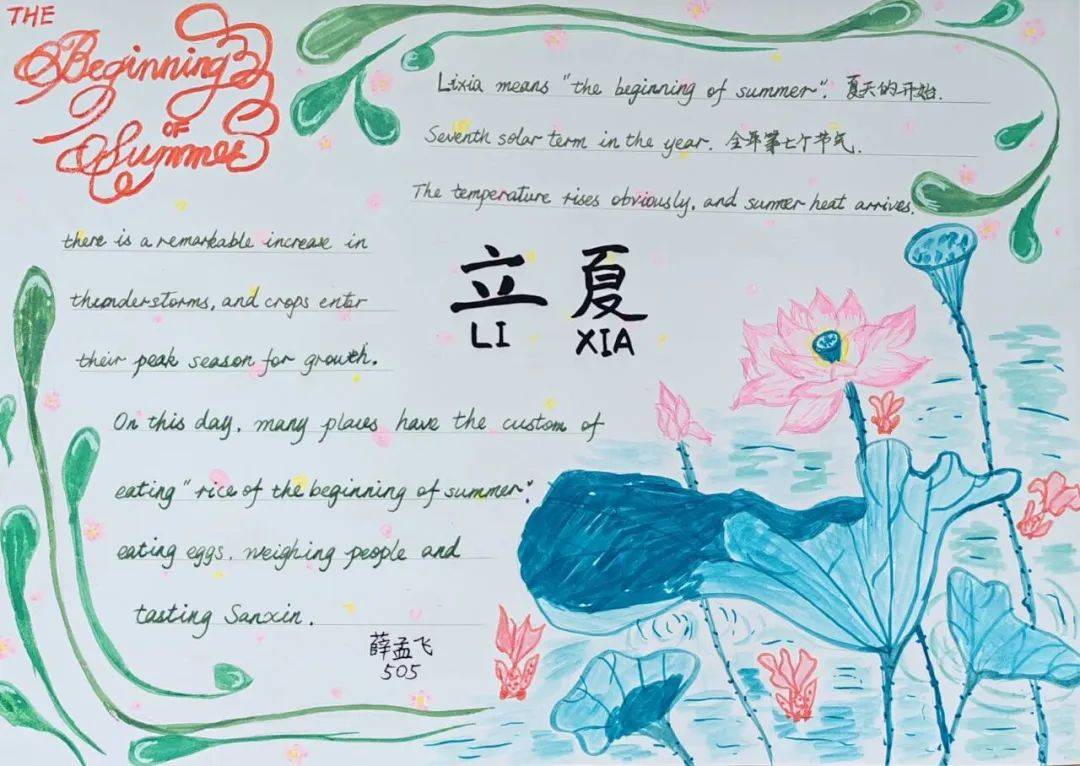 THE
Beginning
OF
Summer
Lixia means "the beginning of summer". 夏天的开始.
Seventh solar term in the year. 全年第七个节气.
The temperature rises obviously, and summer heat arrives.
there is a remarkable increase in
thunderstorms, and crops enter
their peak season for growth.
立夏
LI XIA
On this day, many places have the custom of
eating "rice of the beginning of summer".
eating eggs, weighing people and
tasting Sanxin.
薛孟飞
505